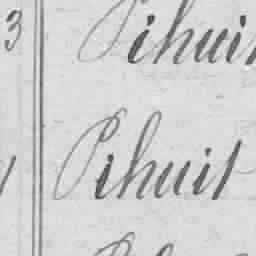 3 Pihuit
Pihuit